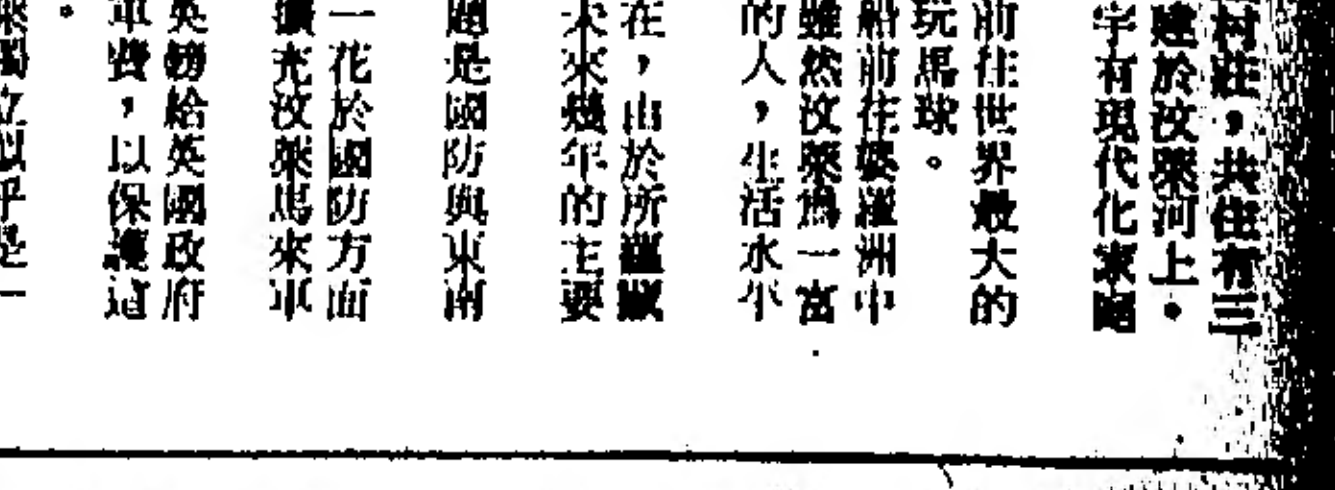 村莊，共住有三
建於汶萊河上。
宇有現代化家
前往世界最大的
玩馬球。
船前往婆羅洲中
雖然汶萊為一富
的人，生活水平
在，由於所羅
未來幾年的主要
題是國防與東南
一花於國防方面
擴充汶萊馬來軍
英鎊給英國政府
軍費，以保護這
。
萊獨立似乎是一